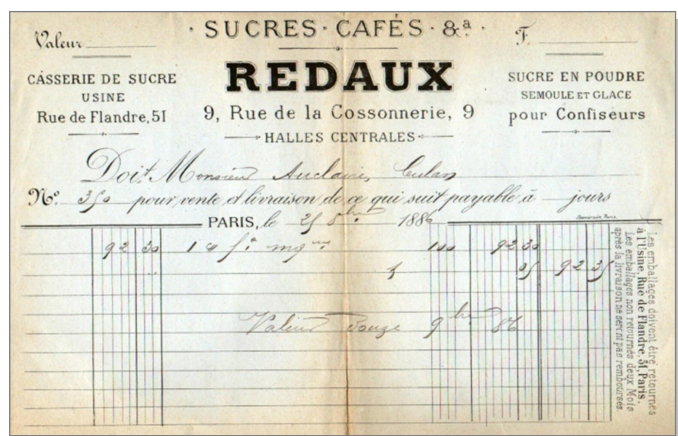 · SUCRES · CAFÉS · &ª ·
Valeur
F.
REDAUX
CASSERIE DE SUCRE
USINE
Rue de Flandre, 51
9, Rue de la Cossonnerie, 9
HALLES CENTRALES
SUCRE EN POUDRE
SEMOULE ET GLACE
pour Confiseurs
Doit Monsieur Auclair, Culan
No. 350 pour vente et livraison de ce qui suit payable à jours
PARIS, le 25 8bre 1886
92 30 100 92 30
92 35
Valeur Douze 9bre 86
Les emballages doivent être retournés
à l'Usine, Rue de Flandre, 51, Paris.
Les emballages non retournés deux Mois
après la livraison ne seront pas remboursés